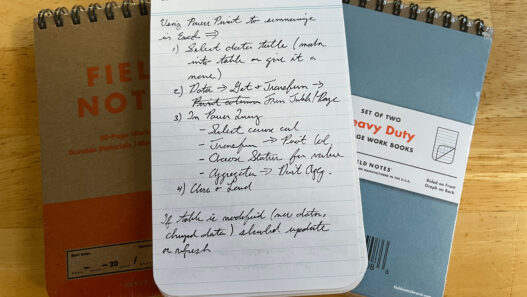 FIELD
NOTES
Using Power Pivot to summarize
in Excel ⇒
1) Select data table (make
into table or give it a
name)
2) Data → Get & Transform →
Pivot column From Table/Range
3) In Power Query
- Select course col
- Transform → Pivot Col.
- Choose Status for value
- Aggregate → Don't Agg.
4) Close & Load
If table is modified (new data,
changed data) should update
on refresh
SET OF TWO
Heavy Duty
PAGE WORK BOOKS
FIELD NOTES
Ruled on Front
Graph on Back